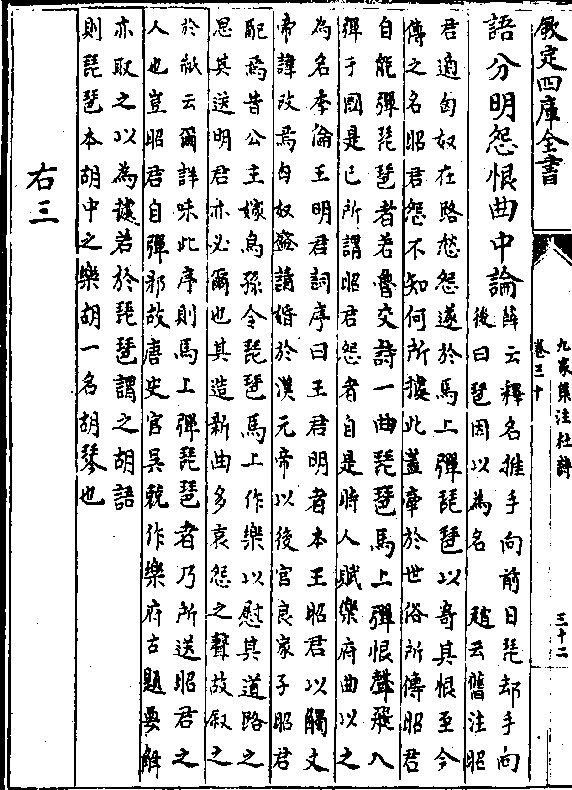 欽定四庫全書
九家集注杜詩
卷三十
三十二
語分明怨恨曲中論
薛云釋名推手向前曰琵却手向
後曰琶因以為名 趙云舊注昭
君適匈奴在路愁怨遂於馬上彈琵琶以寄其恨至今
傳之名昭君怨不知何所據此蓋牽於世俗所傳昭君
自能彈琵琶者若魯交詩一曲琵琶馬上彈恨聲飛入
彈于國是已所謂昭君怨者自是時人賦樂府曲以之
為名李倫王明君詞序曰王君明者本王昭君以觸文
帝諱改焉匈奴盛請婚於漢元帝以後宫良家子昭君
配焉昔公主嫁烏孫令琵琶馬上作樂以慰其道路之
思其送明君亦必爾也其造新曲多哀怨之聲故叙之
於紙云爾詳味此序則馬上彈琵琶者乃所送昭君之
人也豈昭君自彈耶故唐史官吳兢作樂府古題要解
亦取之以為據若於琵琶謂之胡語
則琵琶本胡中之樂胡一名胡琴也
右三